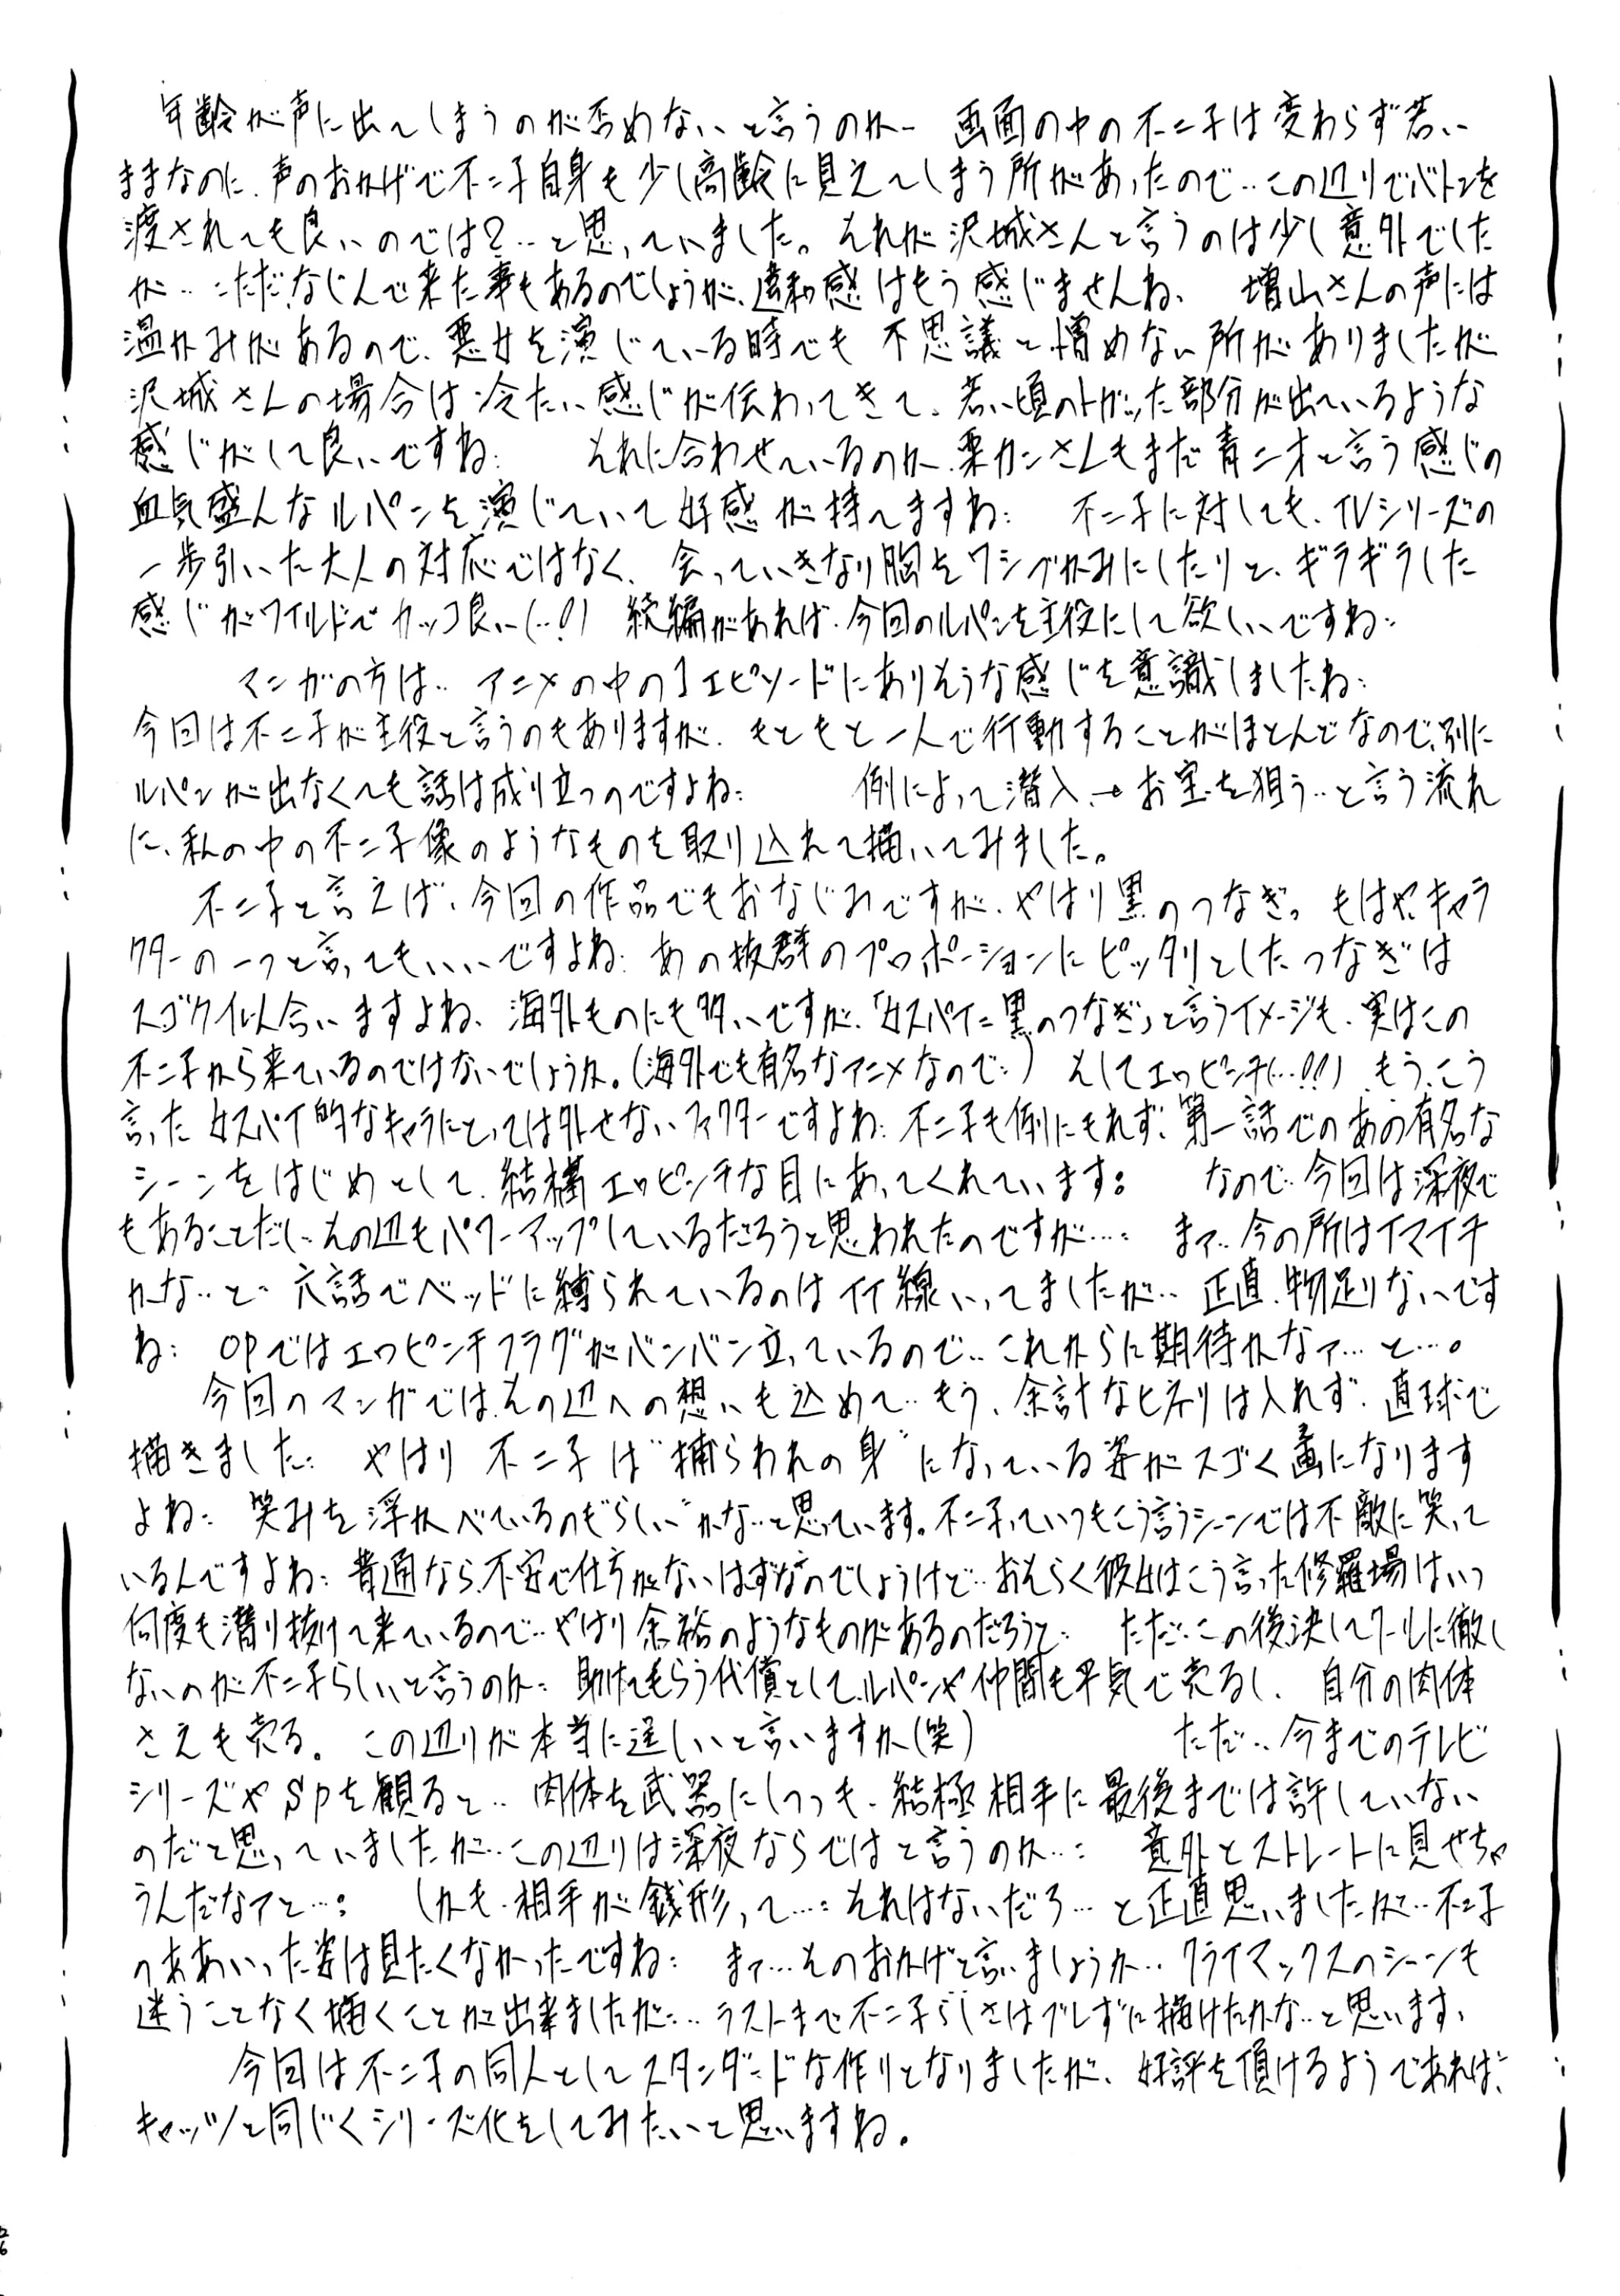 年齢が声に出てしまうのが否めないと言うのか‥ 画面の中の不二子は変わらず若い
ままなのに、声のおかげで不二子自身も少し高齢に見えてしまう所があったので‥この辺りでバトンを
渡されても良いのでは?‥と思っていました。それが沢城さんと言うのは少し意外でした
が‥ ただ、なじんで来た事もあるのでしょうが、違和感はもう感じませんね、 増山さんの声には
温かみがあるので、悪女を演じている時でも 不思議と憎めない所がありましたが
沢城さんの場合は冷たい感じが伝わってきて、若い頃のトガった部分が出ているような
感じがして良いですね: それに合わせているのか、栗カンさんもまだ青二才と言う感じの
血気盛んなルパンを演じていて好感が持てますね: 不二子に対しても、TVシリーズの
一歩引いた大人の対応ではなく、会っていきなり胸をワシヅかみにしたりと、ギラギラした
感じがワイルドでカッコ良い(‥!) 続編があれば、今回のルパンを主役にして欲しいですね‥
マンガの方は‥ アニメの中の1エピソードにありそうな感じを意識しましたね:
今回は不二子が主役と言うのもありますが、もともと一人で行動することがほとんどなので、別に
ルパンが出なくても話は成り立つのですよね: 例によって潜入→お宝を狙う‥と言う流れ
に、私の中の不二子像のようなものを取り込れて描いてみました。
不二子と言えば、今回の作品でもおなじみですが、やはり黒のつなぎ。もはや、キャラ
クターの一つと言ってもいいですよね: あの抜群のプロポーションにピッタリとしたつなぎは
スゴク似合いますよね、海外ものにも多いですが、「女スパイ=黒のつなぎ」と言うイメージも、実はこの
不二子から来ているのではないでしょうか。(海外でも有名なアニメなので:) そしてエロピンチ(…!!) もう、こう
言った女スパイ的なキャラにとっては外せないファクターですよね: 不二子も例にもれず、第一話でのあの有名な
シーンをはじめとして、結構エロピンチな目にあってくれています: なので‥今回は深夜で
もあることだし‥その辺もパワーアップしているだろうと思われたのですが…: まァ‥今の所はイマイチ
かな‥と‥ 六話でベッドに縛られているのはイイ線いってましたが‥ 正直、物足りないです
ね: OPではエロピンチフラグがバンバン立っているので‥これからに期待かなァ…と…。
今回のマンガでは、その辺への想いも込めて‥もう、余計なヒネリは入れず、直球で
描きました: やはり 不二子は“捕らわれの身”になっている姿がスゴく画になります
よね: 笑みを浮かべているのも“らしい”かな‥と思っています。不二子っていつもこう言うシーンでは不敵に笑って
いるんですよね: 普通なら、不安で仕方がないはずなのでしょうけど‥おそらく彼女はこう言った修羅場はいつ
何度も潜り抜けて来ているので‥やはり余裕のようなものがあるのだろうと‥ ただ‥この後決してクールに徹し
ないのが不二子らしいと言うのか: 助けてもらう代償として、ルパンや仲間も平気で売るし、自分の肉体
さえも売る。この辺りが本当に逞しいと言いますか(笑) ただ‥今までのテレビ
シリーズやSPを観ると‥ 肉体を武器にしつつも、結極相手に最後までは許していない
のだと思っていましたが‥この辺りは深夜ならではと言うのか‥: 意外とストレートに見せちゃ
うんだなァと…: しかも、相手が銭形って…: それはないだろ…と正直思いましたが…不二子
のああいった姿は見たくなかったですね: まァ…そのおかげと言いましょうか‥クライマックスのシーンも
迷うことなく描くことが出来ましたが:‥ラストまで不二子らしさはブレずに描けたかな‥と思います、
今回は不二子の同人としてスタンダードな作りとなりましたが、好評を頂けるようであれば、
キャッツと同じくシリーズ化をしてみたいと思いますね。